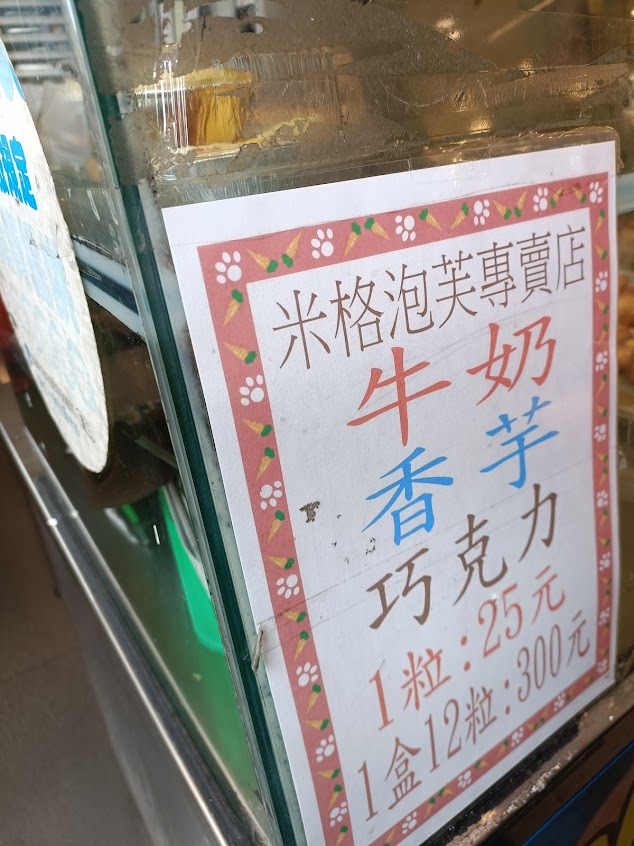 米格泡芙專賣店
牛奶
香芋
巧克力
1粒:25元
1盒12粒:300元